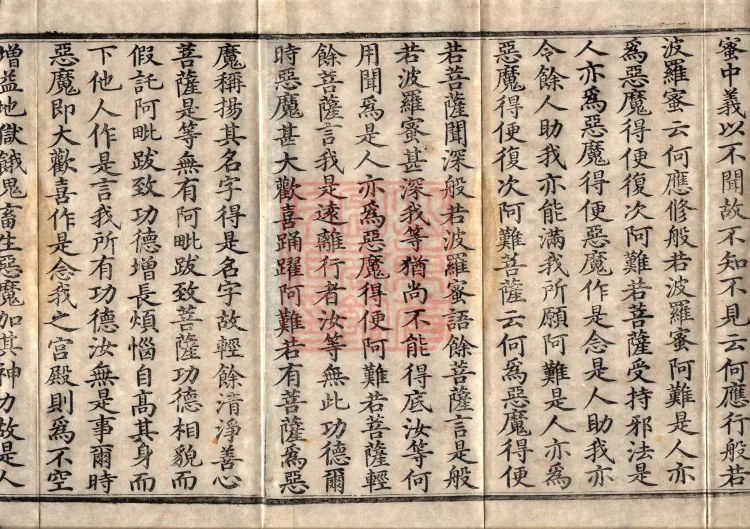 蜜中義以不聞故不知不見云何應行般若
波羅蜜云何應修般若波羅蜜阿難是人亦
為惡魔得便復次阿難若菩薩受持邪法是
人亦為惡魔得便惡魔作是念是人助我亦
令餘人助我亦能滿我所願阿難是人亦為
惡魔得便復次阿難菩薩云何為惡魔得便
若菩薩聞深般若波羅蜜語餘菩薩言是般
若波羅蜜甚深我等猶尚不能得底汝等何
用聞為是人亦為惡魔得便阿難若菩薩輕
餘菩薩言我是遠離行者汝等無此功德爾
時惡魔甚大歡喜踊躍阿難若有菩薩為惡
魔稱揚其名字得是名字故輕餘清淨善心
菩薩是等無有阿毗跋致菩薩功德相貌而
假託阿毗跋致功德增長煩惱自高其身而
下他人作是言我所有功德汝無是事爾時
惡魔即大歡喜作是念我之宮殿則為不空
增益地獄餓鬼畜生惡魔加其神力故是人